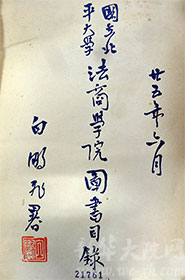 廿五年六月
國立北
平大學
法商學院圖書目錄
白鵬飛署
21761